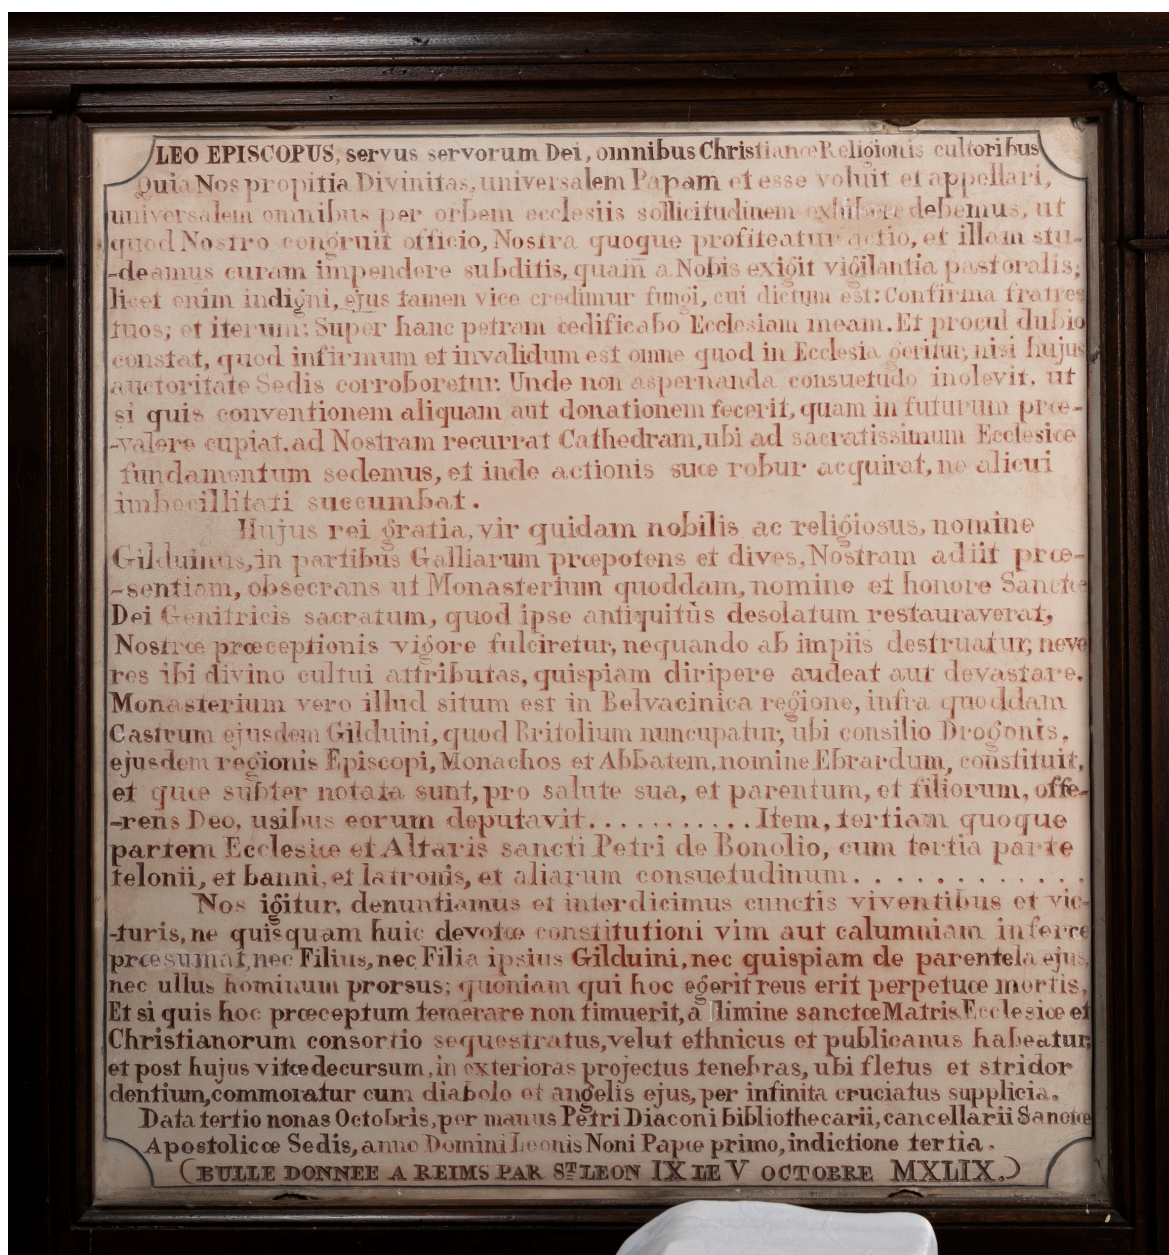 LEO EPISCOPUS, servus servorum Dei, omnibus Christianæ Religionis cultoribus
quia Nos propitia Divinitas, universalem Papam et esse voluit et appellari,
universalem omnibus per orbem ecclesiis sollicitudinem exhibere debemus, ut
quod Nostro congruit officio, Nostra quoque profiteatur actio, et illam stu-
-deamus curam impendere subditis, quam a Nobis exigit vigilantia pastoralis;
licet enim indigni, ejus tamen vice credimur fungi, cui dictum est: Confirma fratres
tuos; et iterum: Super hanc petram ædificabo Ecclesiam meam. Et procul dubio
constat, quod infirmum et invalidum est omne quod in Ecclesia geritur, nisi hujus
auctoritate Sedis corroboretur. Unde non aspernanda consuetudo inolevit, ut
si quis conventionem aliquam aut donationem fecerit, quam in futurum præ-
-valere cupiat, ad Nostram recurrat Cathedram, ubi ad sacratissimum Ecclesiæ
fundamentum sedemus, et inde actionis suæ robur acquirat, ne alicui
imbecillitati succumbat.
Hujus rei gratia, vir quidam nobilis ac religiosus, nomine
Gilduinus, in partibus Galliarum præpotens et dives, Nostram adiit præ-
-sentiam, obsecrans ut Monasterium quoddam, nomine et honore Sanctæ
Dei Genitricis sacratum, quod ipse antiquitùs desolatum restauraverat,
Nostræ præceptionis vigore fulciretur, nequando ab impiis destruatur, neve
res ibi divino cultui attributas, quispiam diripere audeat aut devastare.
Monasterium vero illud situm est in Belvacinica regione, infra quoddam
Castrum ejusdem Gilduini, quod Britolium nuncupatur, ubi consilio Drogonis,
ejusdem regionis Episcopi, Monachos et Abbatem, nomine Ebrardum, constituit,
et quæ subter notata sunt, pro salute sua, et parentum, et filiorum, offe-
-rens Deo, usibus eorum deputavit. . . . . . . . . . . Item, tertiam quoque
partem Ecclesiæ et Altaris sancti Petri de Bonolio, cum tertia parte
telonii, et banni, et latronis, et aliarum consuetudinum. . . . . . . . . . . .
Nos igitur, denuntiamus et interdicimus cunctis viventibus et vic-
-turis, ne quisquam huic devotæ constitutioni vim aut calumniam inferre
præsumat, nec Filius, nec Filia ipsius Gilduini, nec quispiam de parentela ejus,
nec ullus hominum prorsus; quoniam qui hoc egerit reus erit perpetuæ mortis,
Et si quis hoc præceptum temerare non timuerit, a limine sanctæ Matris Ecclesiæ et
Christianorum consortio sequestratus, velut ethnicus et publicanus habeatur;
et post hujus vitæ decursum, in exterioras projectus tenebras, ubi fletus et stridor
dentium, commoratur cum diabolo et angelis ejus, per infinita cruciatus supplicia.
Data tertio nonas Octobris, per manus Petri Diaconi bibliothecarii, cancellarii Sanctæ
Apostolicæ Sedis, anno Domini Leonis Noni Papæ primo, indictione tertia.
(BULLE DONNEE A REIMS PAR ST LEON IX LE V OCTOBRE MXLIX.)